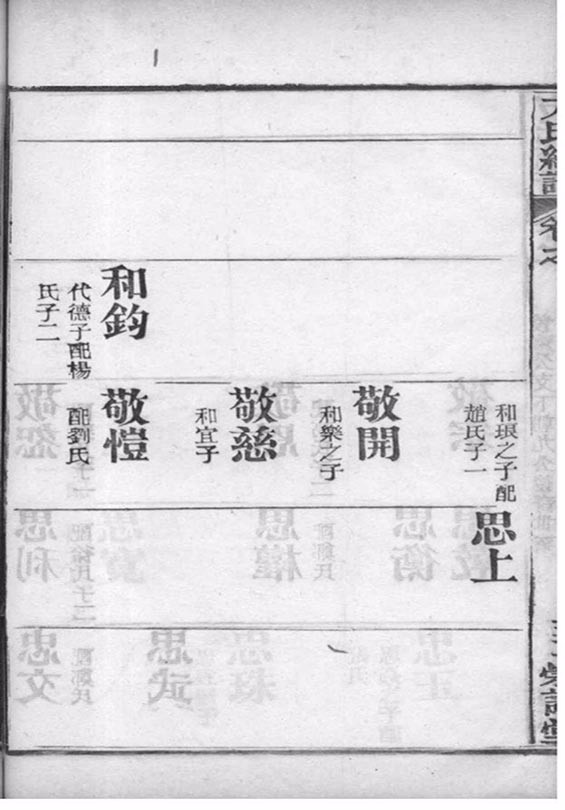 和琅之子配
趙氏子一
思上
敬開
和樂之子
敬慈
和宜子
和鈞
代德子配楊
氏子二
敬愷
配劉氏